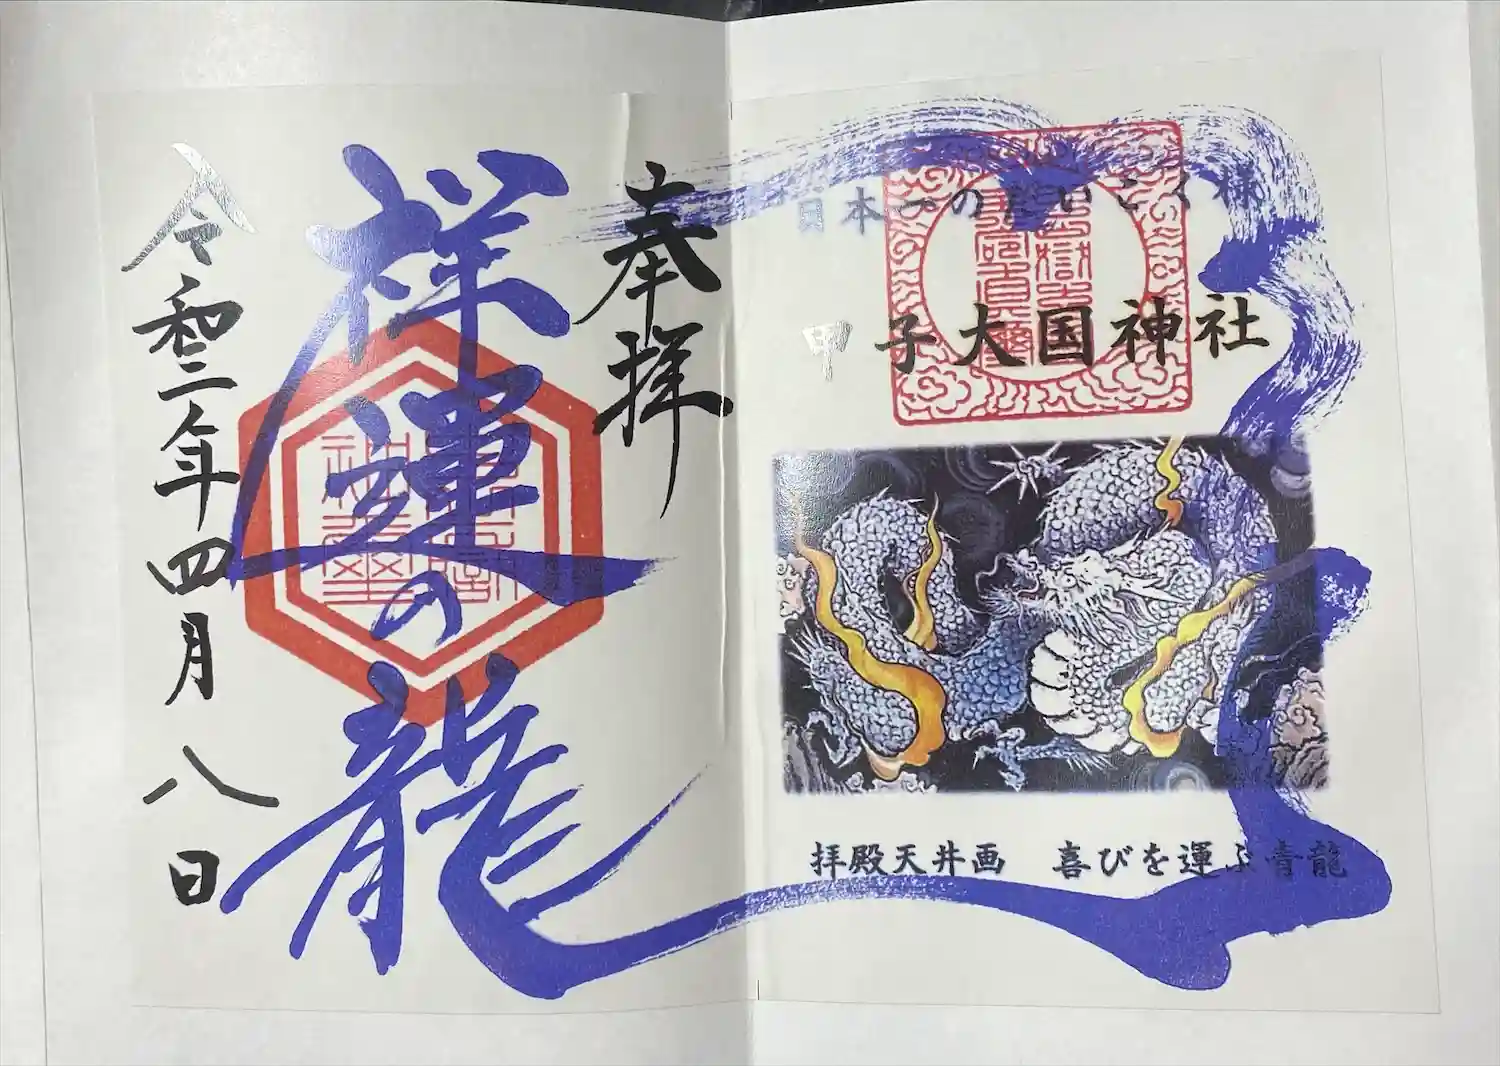 日本一のだいこく様
甲子大国神社
拝殿天井画 喜びを運ぶ青龍
奉拝
祥運の龍
令和二年四月八日